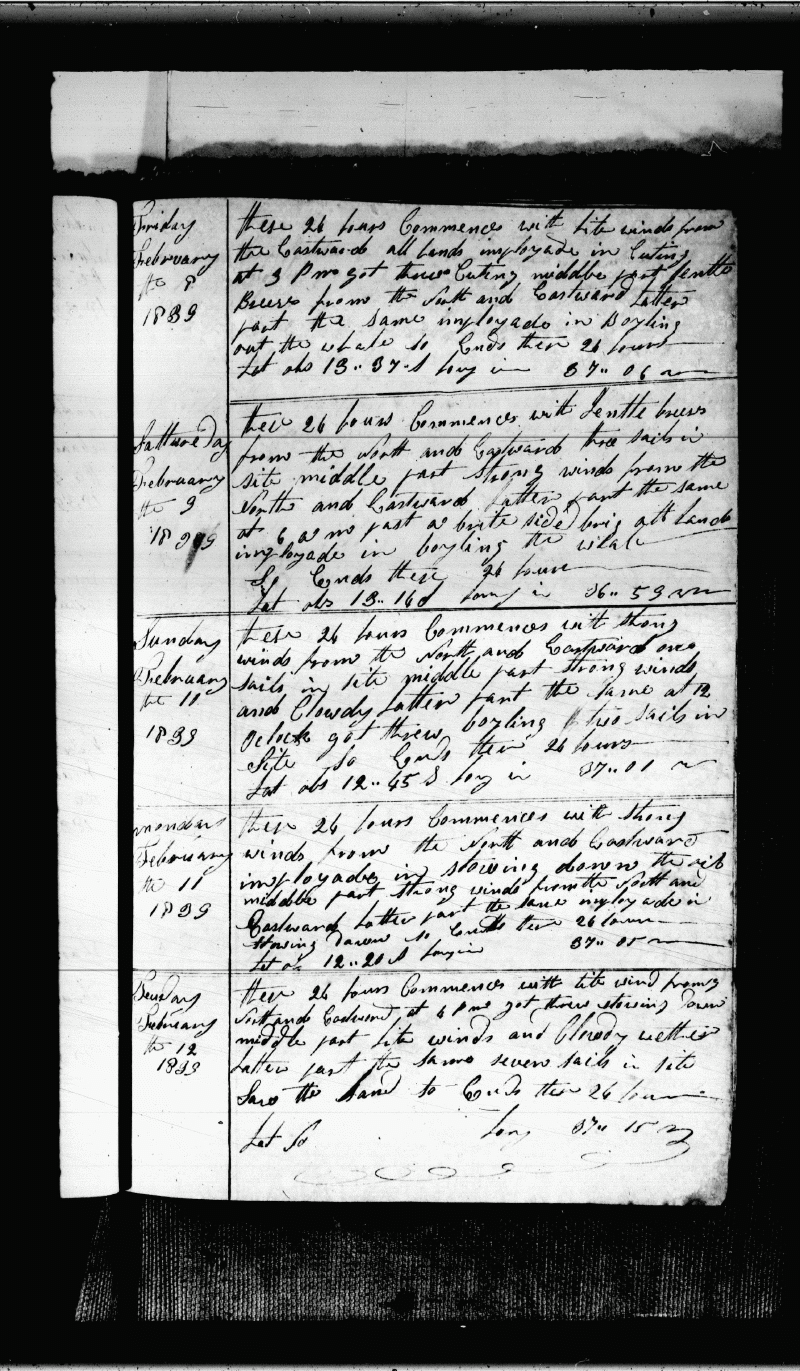 Friday
February
the 8
1839
these 24 hours Commences with lite winds from
the Eastward all hands imployade in Cuting
at 3 P m got threw Cuting middle part Gentle
Breese from the North and Eastward Latter
part the same imployade in Boyling
out the whale so Ends these 24 hours
Lat obs 13.. 37 S Long in 37.. 06 w
Satture day
Februaary
the 9
1839
these 24 hours Commences with Gentle breese
from the North and Eastward three sails in
site middle part strong winds from the
North and Eastward Latter part the same
at 6 a m past a brite sided brig all hands
imployade in boyling the whale
So Ends these 24 hours
Lat obs 13.. 16 S Long in 36.. 59 w
Sunday
February
the 11
1839
these 24 hours Commences with strong
winds from the North and Eastward
sails in site middle part strong winds
and Clowdy Latter part the same at 12
Oclock got threw boyling two sails in
Site So Ends these 24 hours
Lat obs 12.. 45 S Long in 37.. 01 w
monday
February
the 11
1839
these 24 hours Commences with strong
winds from the North and Eastward
imployade in stowing down the oil
middle part strong winds from the North and
Eastward Latter part the same imployade in
stowing down so Ends these 24 hours
Lat obs 12.. 20 S Long in 37.. 05 w
Teusday
February
the 12
1839
these 24 hours Commences with lite wind from
North and Eastward at 4 P m got threw stowing down
middle part lite winds and Clowdy wether
Latter part the same seven sails in site
Saw the Land So Ends these 24 hours
Lat So Long 37.. 15 w